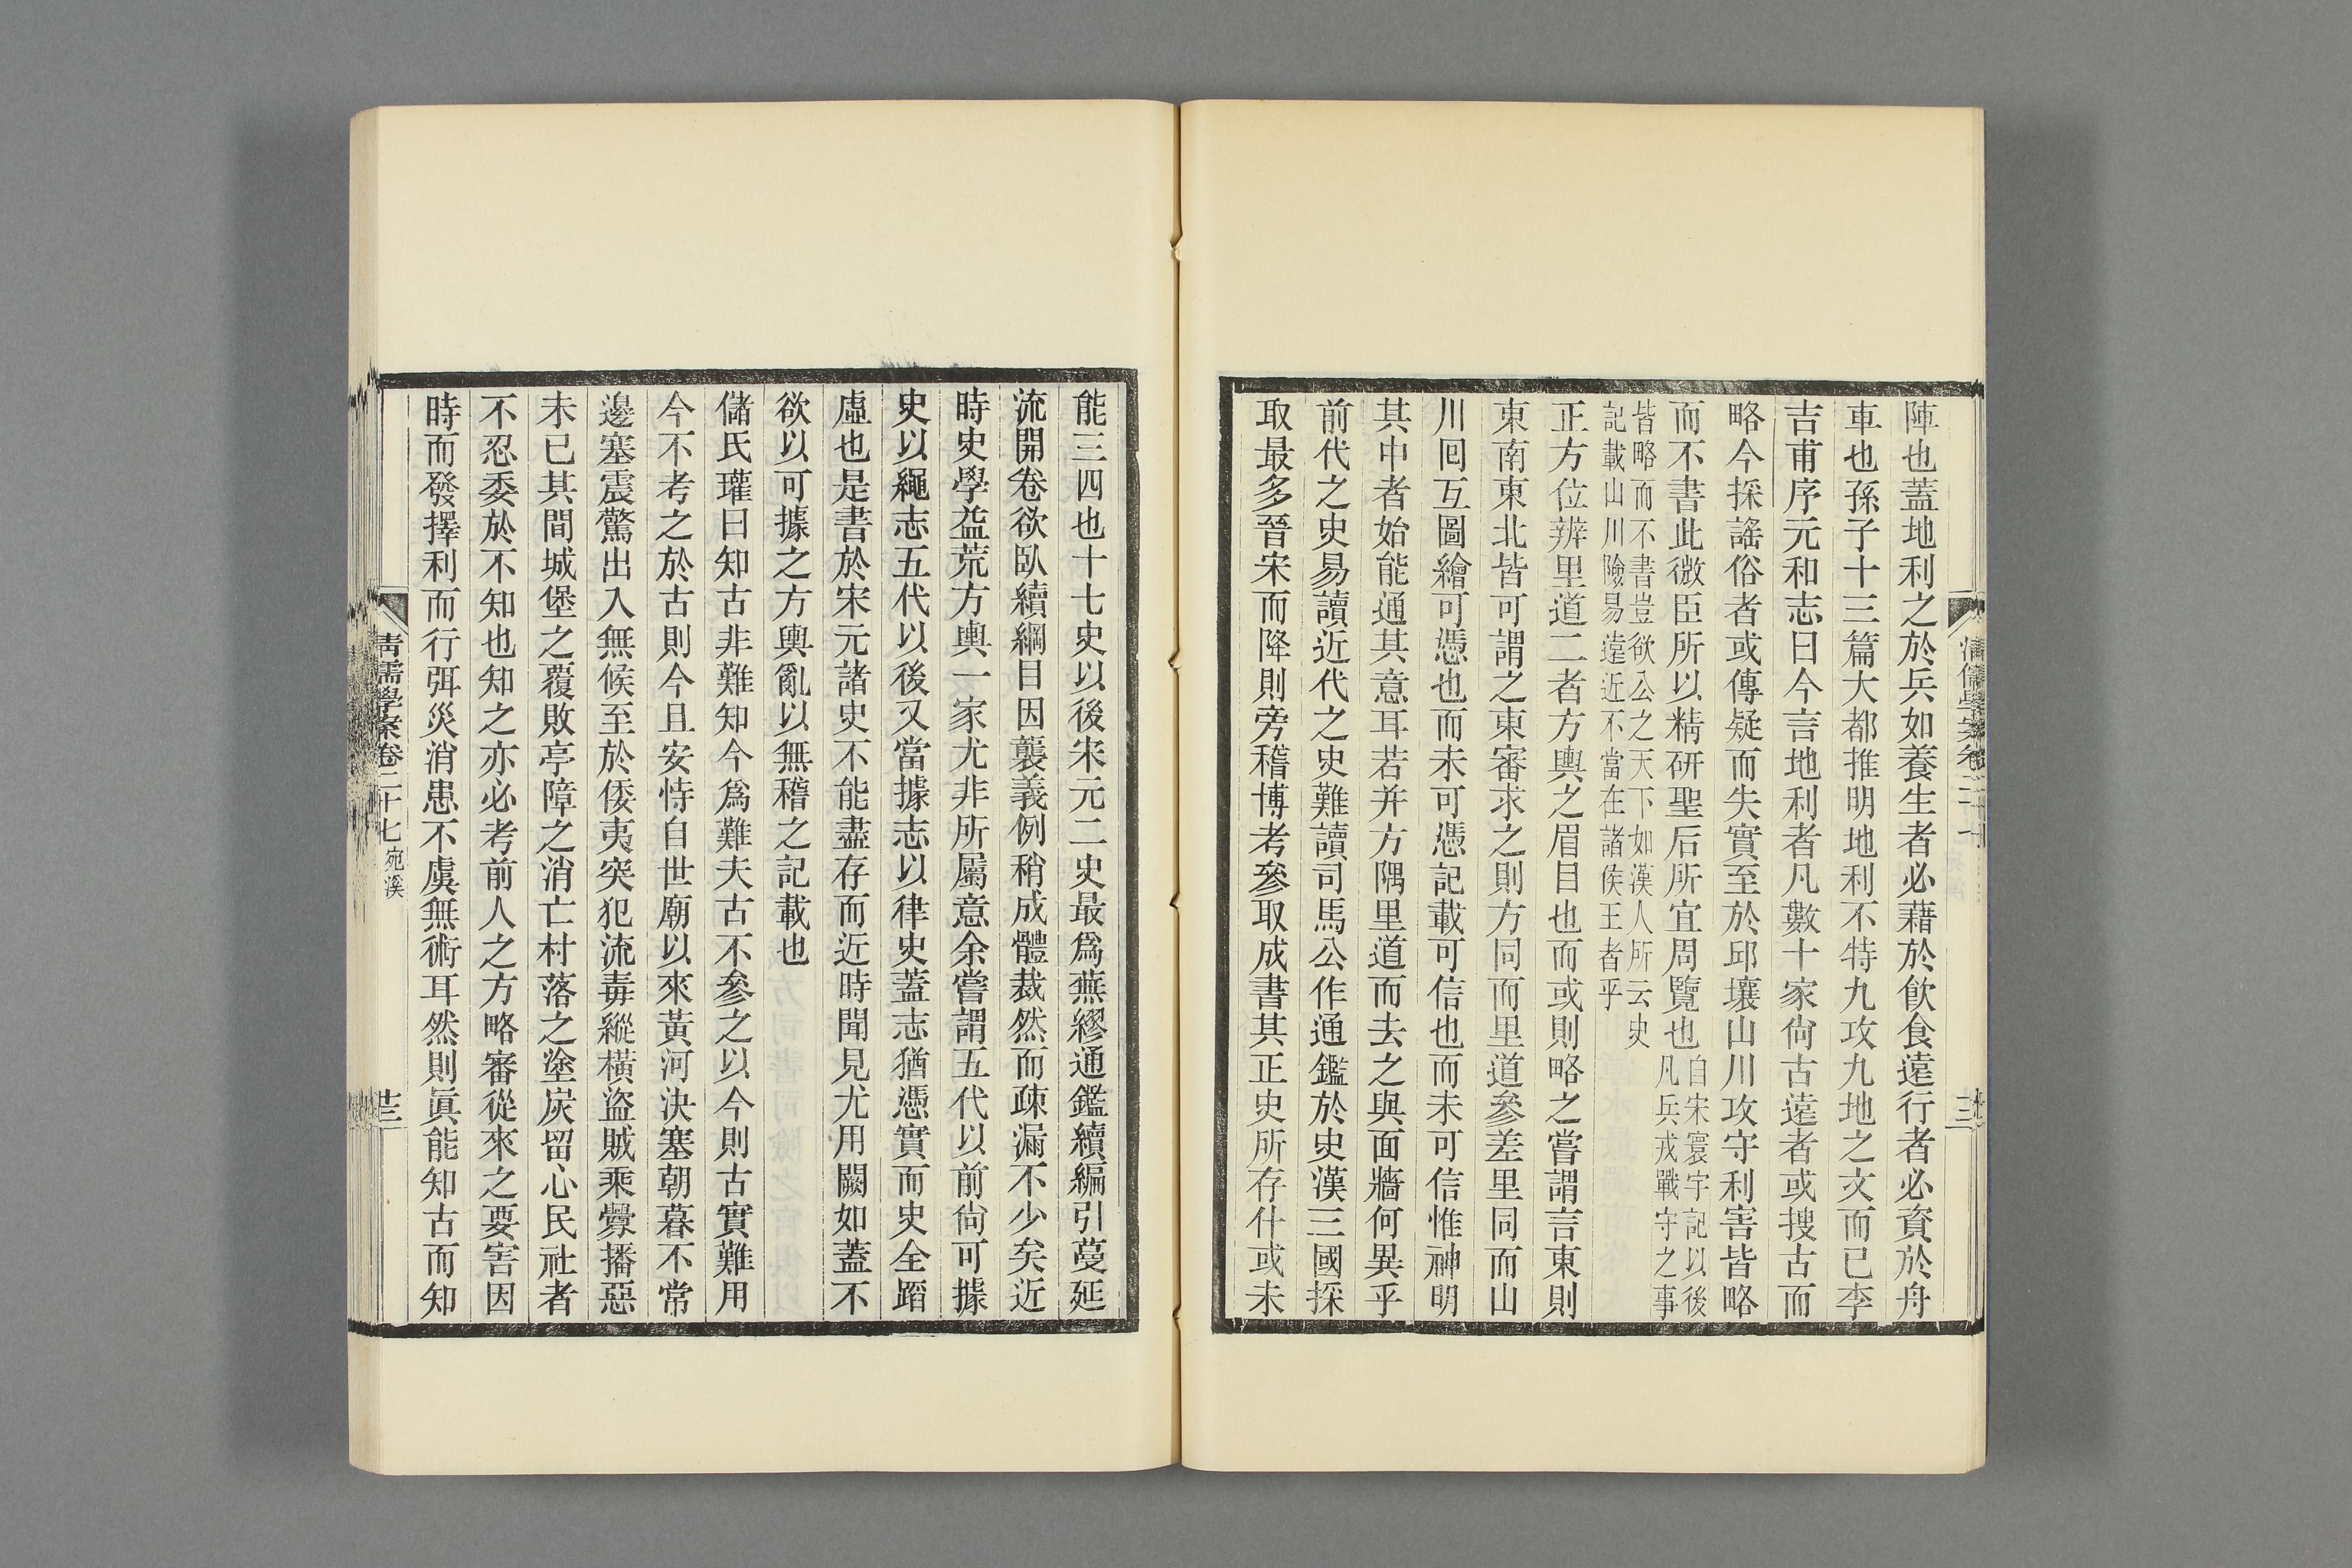 陣也蓋地利之於兵如養生者必藉於飮食遠行者必資於舟
車也孫子十三篇大都推明地利不特九攻九地之文而已李
吉甫序元和志曰今言地利者凡數十家尙古遠者或搜古而
略今採謠俗者或傳疑而失實至於邱壤山川攻守利害皆略
而不書此微臣所以精研聖后所宜周覽也
自宋寰宇記以後
凡兵戎戰守之事
皆略而不書豈欲公之天下如漢人所云史
記載山川險易遠近不當在諸侯王者乎
正方位辨里道二者方輿之眉目也而或則略之嘗謂言東則
東南東北皆可謂之東審求之則方同而里道參差里同而山
川囘互圖繪可憑也而未可憑記載可信也而未可信惟神明
其中者始能通其意耳若并方隅里道而去之與面牆何異乎
前代之史易讀近代之史難讀司馬公作通鑑於史漢三國採
取最多晉宋而降則旁稽博考參取成書其正史所存什或未
能三四也十七史以後宋元二史最爲蕪繆通鑑續編引蔓延
流開卷欲臥續綱目因襲義例稍成體裁然而疎漏不少矣近
時史學益荒方輿一家尤非所屬意余嘗謂五代以前尙可據
史以繩志五代以後又當據志以律史蓋志猶憑實而史全蹈
虛也是書於宋元諸史不能盡存而近時聞見尤用闕如蓋不
欲以可據之方輿亂以無稽之記載也
儲氏瓘曰知古非難知今爲難夫古不參之以今則古實難用
今不考之於古則今且安恃自世廟以來黃河決塞朝暮不常
邊塞震驚出入無候至於倭夷突犯流毒縱橫盜賊乘釁播惡
未已其間城堡之覆敗亭障之消亡村落之塗炭留心民社者
不忍委於不知也知之亦必考前人之方略審從來之要害因
時而發擇利而行弭災消患不虞無術耳然則眞能知古而知
淸儒學案卷二十七 宛溪
十三